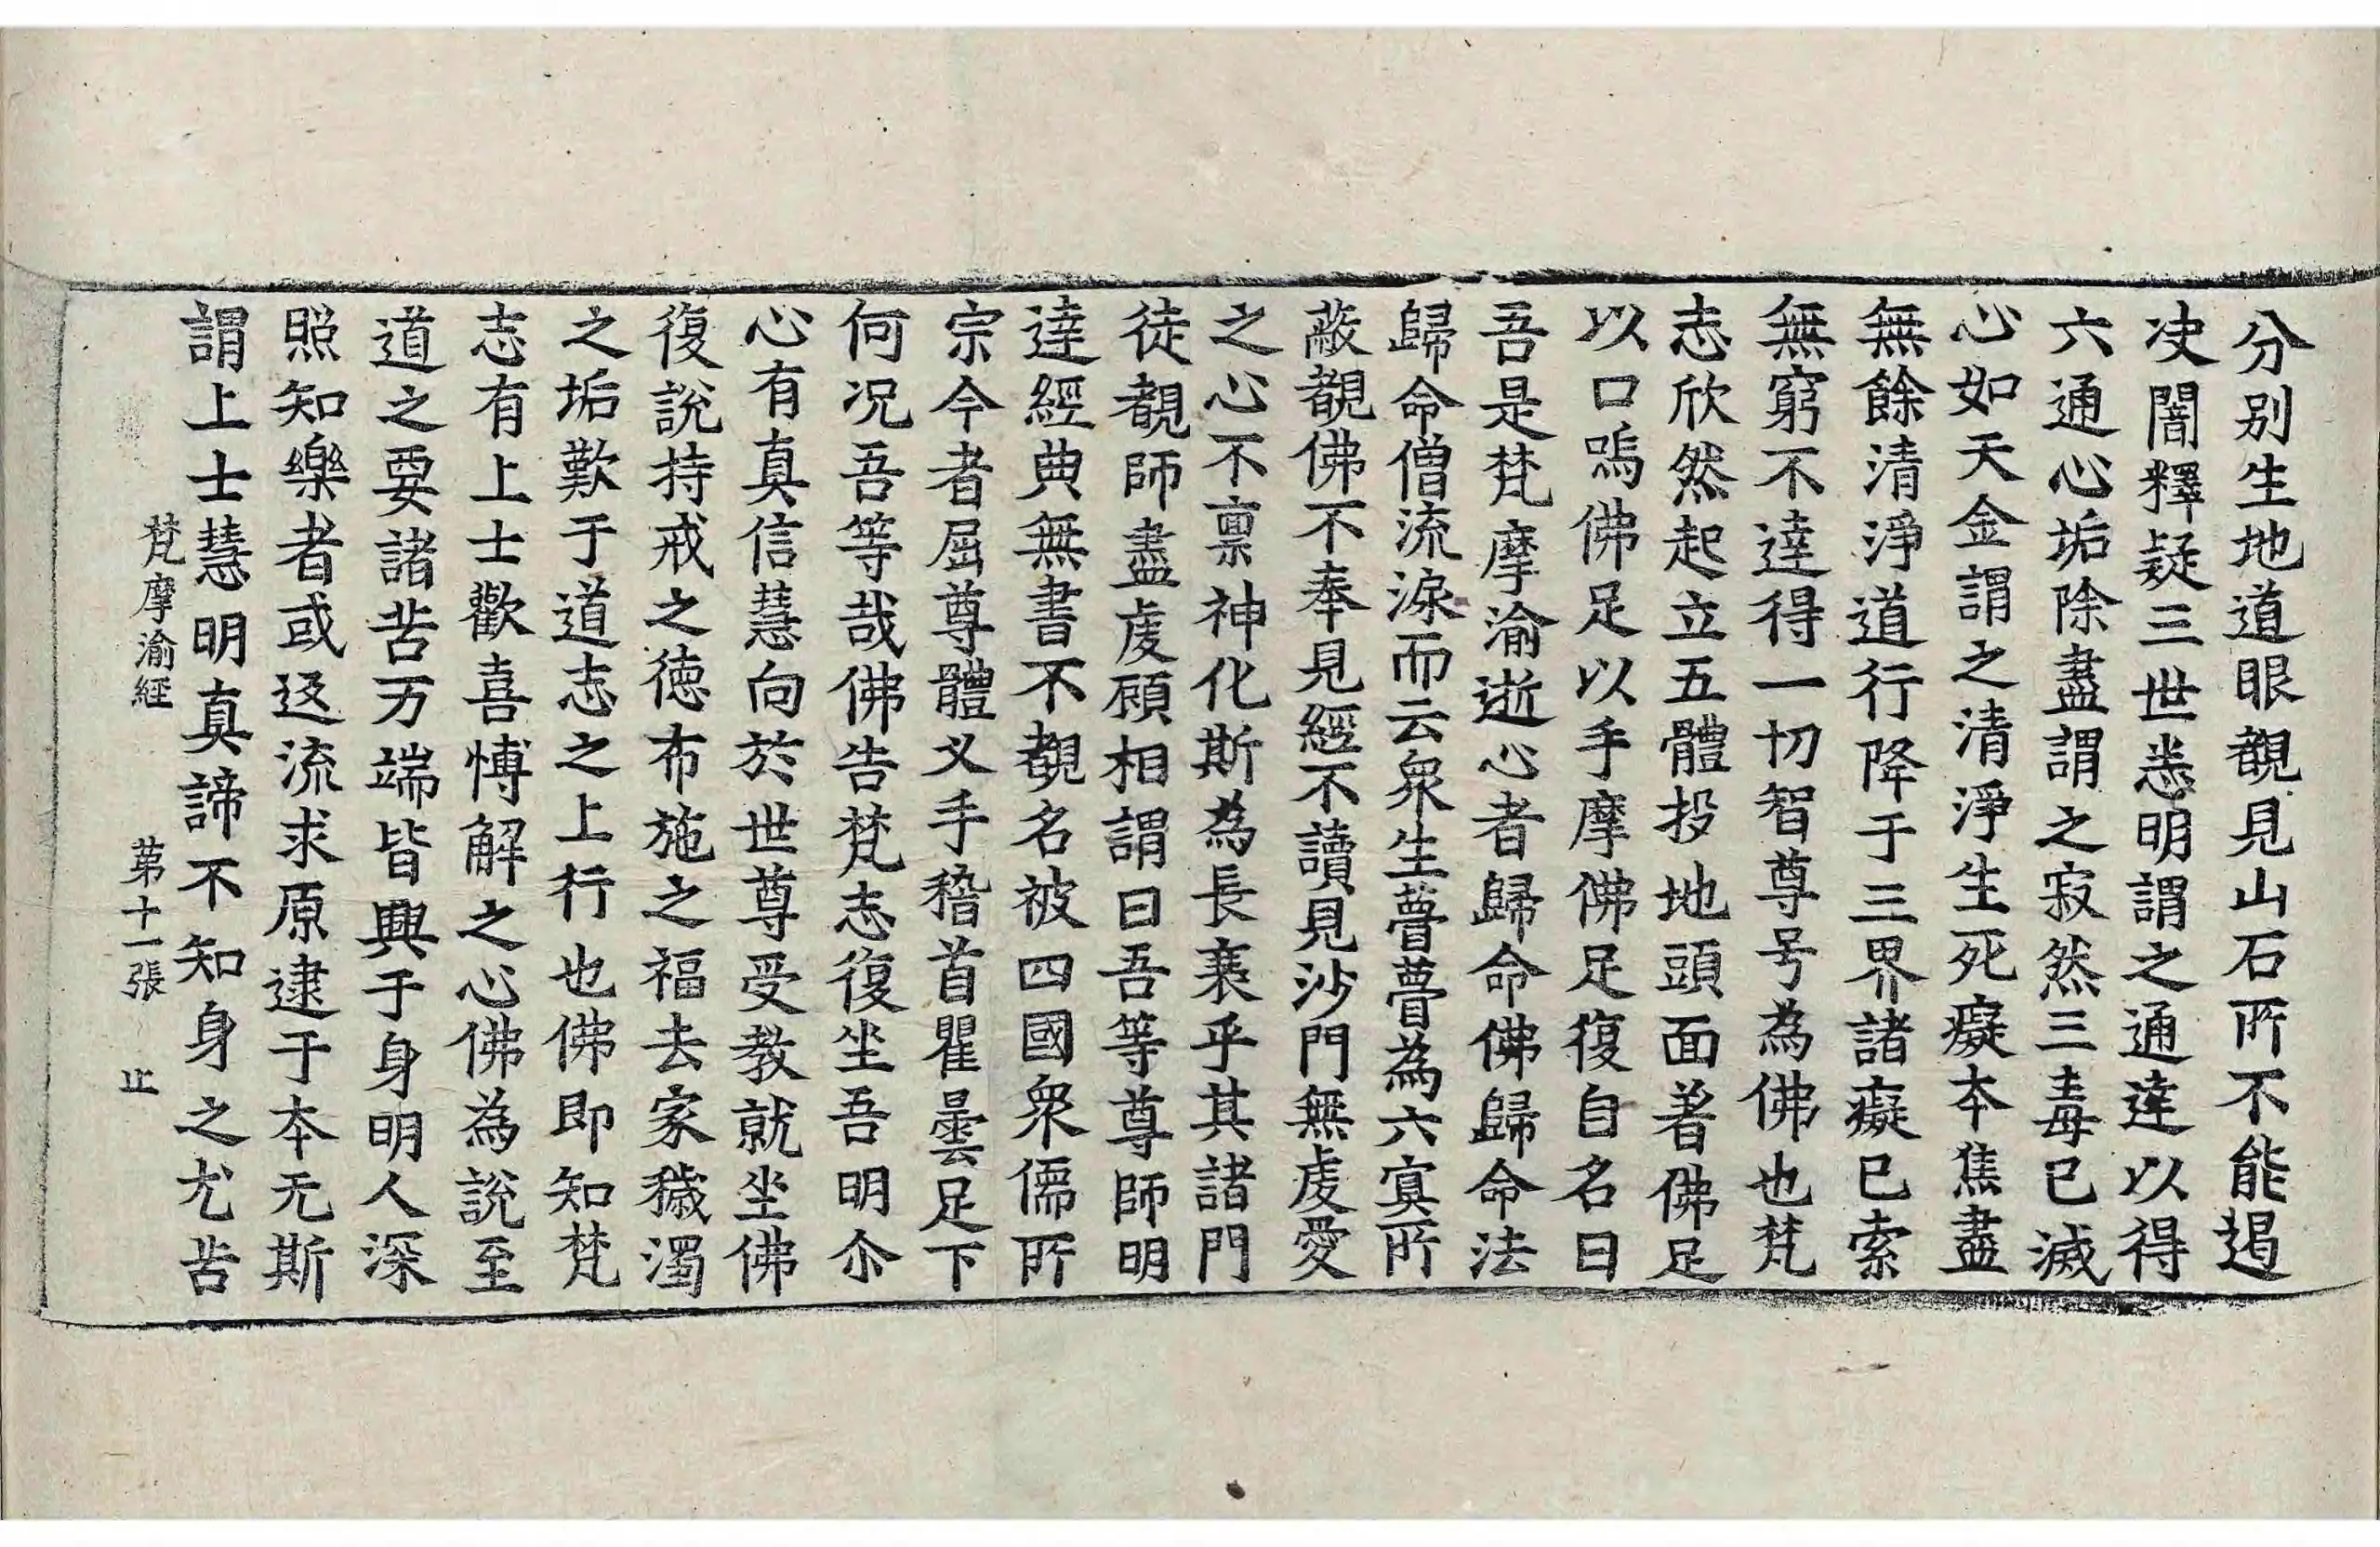 分別生地道眼覩見山石所不能遏
决闇釋疑三世悉明謂之通達以得
六通心垢除盡謂之寂然三毒已滅
心如天金謂之清淨生死癡本焦盡
無餘清淨道行降于三界諸癡已索
無窮不達得一切智尊号為佛也梵
志欣然起立五體投地頭面著佛足
以口嗚佛足以手摩佛足復自名曰
吾是梵摩渝逝心者歸命佛歸命法
歸命僧流淚而云衆生瞢瞢為六冥所
蔽覩佛不奉見經不讀見沙門無虔愛
之心不禀神化斯為長衰乎其諸門
徒覩師盡虔顧相謂曰吾等尊師明
達經典無書不覩名被四國衆儒所
宗今者屈尊體叉手稽首瞿曇足下
何況吾等哉佛告梵志復坐吾明尒
心有真信慧向於世尊受教就坐佛
復說持戒之德布施之福去家穢濁
之垢歎于道志之上行也佛即知梵
志有上士歡喜愽解之心佛為說至
道之要諸苦万端皆興于身明人深
照知樂者或返流求原逮于本无斯
謂上士慧明真諦不知身之尤苦
梵摩渝經 第十一張 止